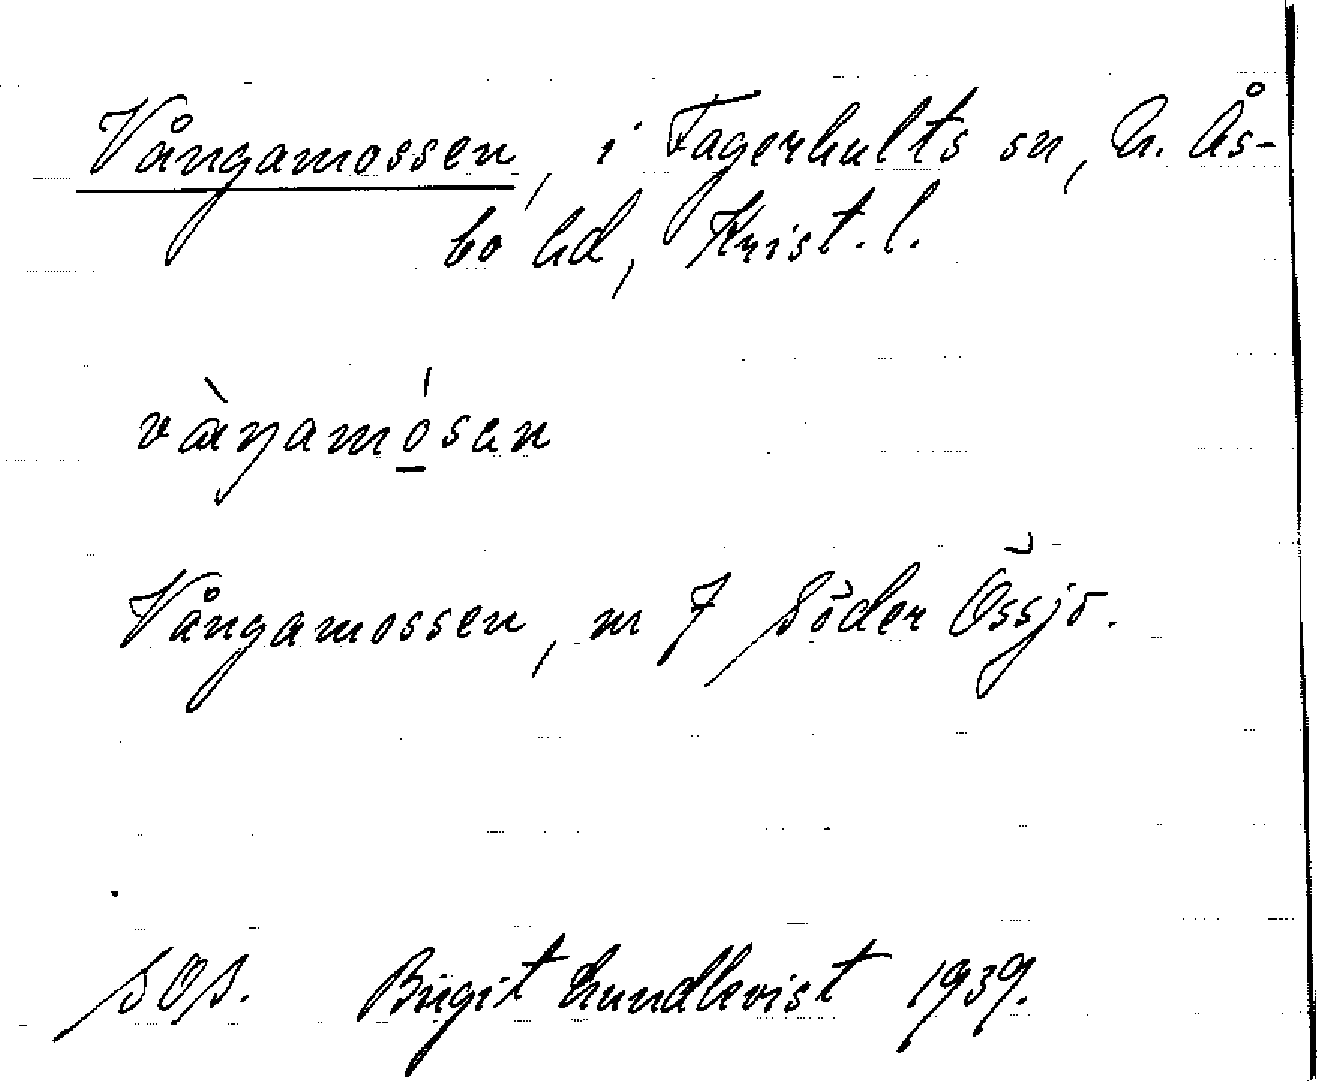 Vångamossen, i Fagerhults sn, N. Ås-
bo hd, Krist. l.
vàŋamósan
Vångamossen, m 7 Söder Össjö.
SOS. Birgit Lundkvist 1939.